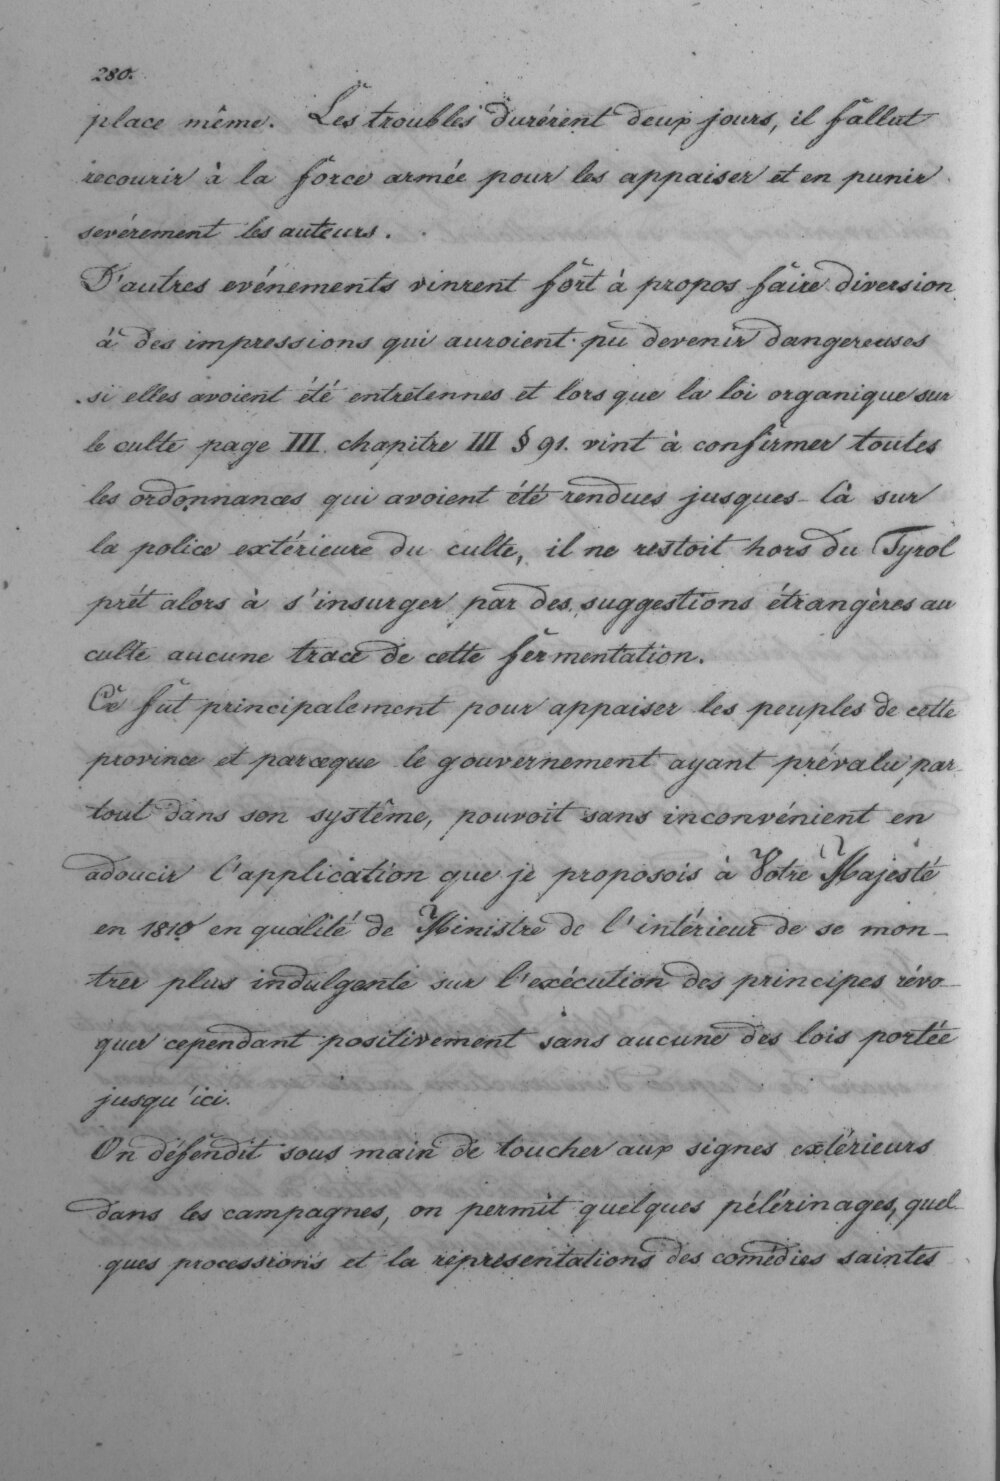 280.
place même. Les troubles durérent deux jours, il fallut
recourir à la force armée pour les appaiser et en punir
sevérement les auteurs.
D'autres evénements vinrent fort à propos faire diversion
à des impressions qui auroient pu devenir dangereuses
si elles avoient été entretennes et lorsque la loi organique sur
le culte page III. chapitre III § 91. vint à confirmer toutes
les ordonnances qui avoient été rendues jusques-là sur
la police extérieure du culte, il ne restoit hors du Tyrol
prêt alors à s'insurger par des suggestions étrangères au
culte aucune trace de cette fermentation.
Ce fut principalement pour appaiser les peuples de cette
province et parceque le gouvernement ayant prévalu par-
tout dans son systême, pouvoit sans inconvénient en
adoucir l'application que je proposois à Votre Majesté
en 1810 en qualité de Ministre de l'intérieur de se mon-
trer plus indulgente sur l'exécution des principes révo-
quer cependant positivement sans aucune des lois portée
jusqu'ici.
On défendit sous main de toucher aux signes extérieurs
dans les campagnes, on permit quelques pélérinages, quel-
ques processions et la représentations des comédies saintes